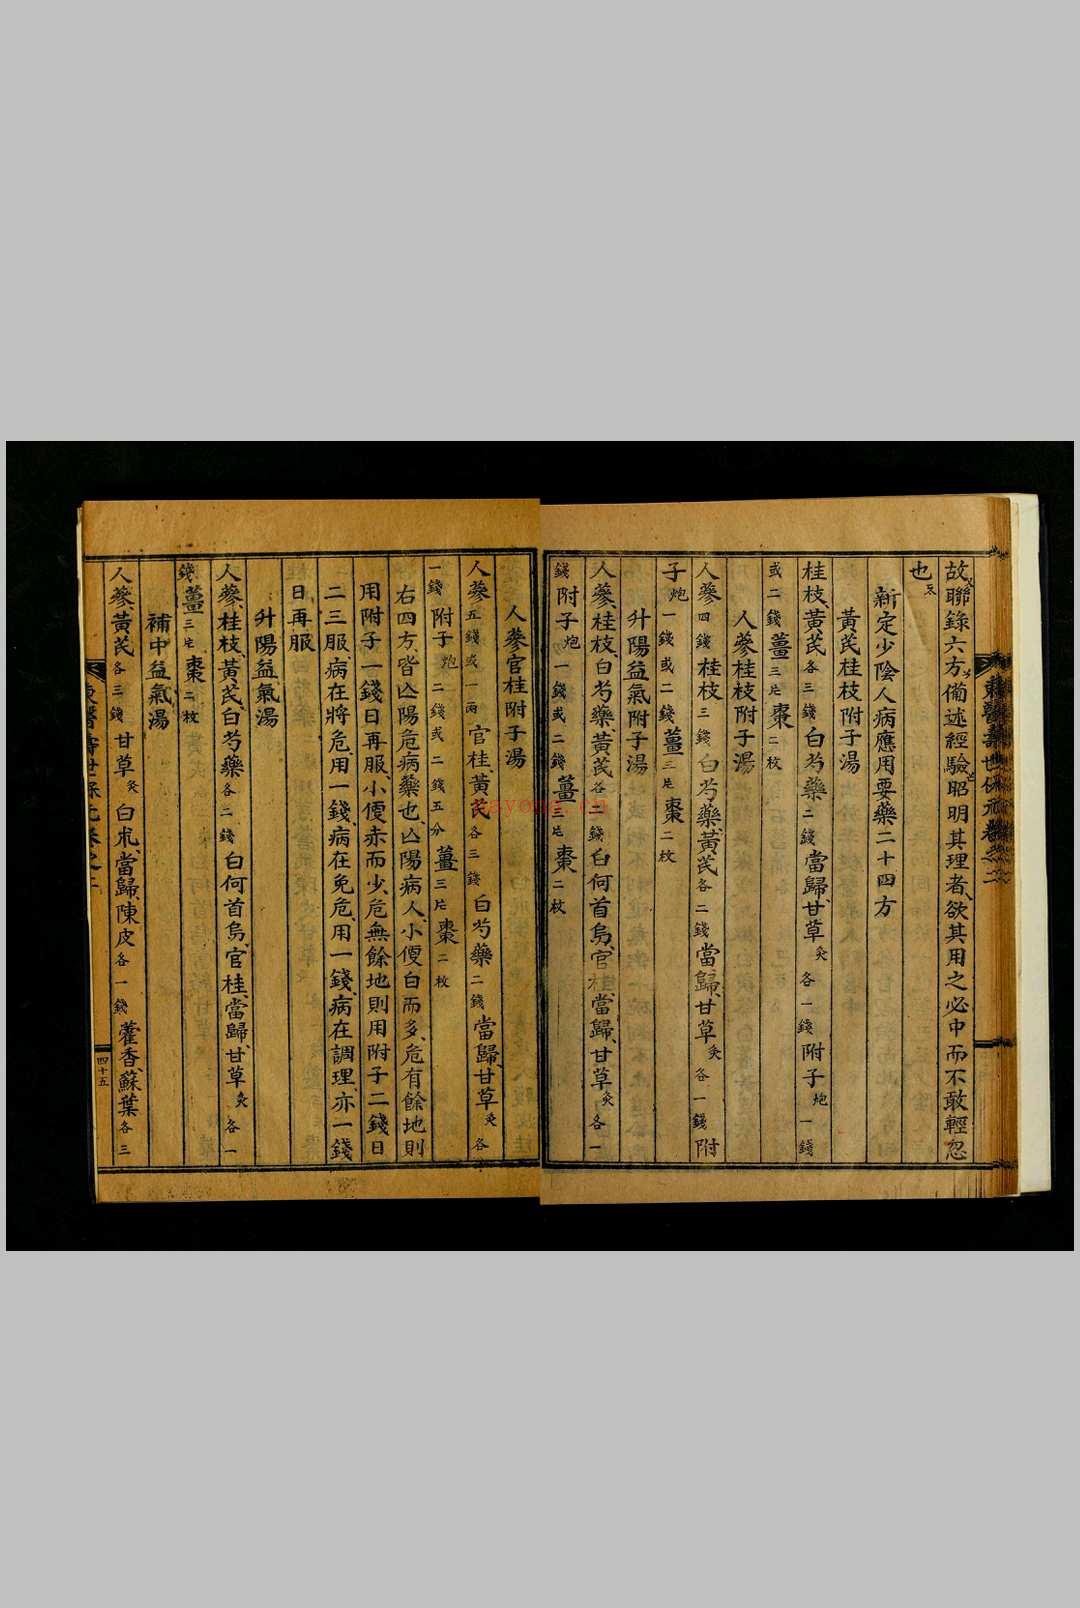 故聯錄六方備述經驗昭明其理者欲其用之必中而不敢輕忽
也
新定少陰人病應用要藥二十四方
黃芪桂枝附子湯
桂枝、黃芪各三錢白芍藥二錢當歸、甘草炙各一錢附子炮一錢
或二錢薑三片棗二枚
人蔘桂枝附子湯
人蔘四錢桂枝三錢白芍藥、黃芪各二錢當歸、甘草炙各一錢附
子炮一錢或二錢薑三片棗二枚
升陽益氣附子湯
人蔘、桂枝、白芍藥、黃芪各二錢白何首烏、官桂、當歸、甘草炙各一
錢附子炮一錢或二錢薑三片棗二枚
東醫壽世保元卷之二
人蔘官桂附子湯
人蔘五錢或一兩官桂、黃芪各三錢白芍藥二錢當歸、甘草炙各
一錢附子炮二錢或二錢五分薑三片棗二枚
右四方、皆亾陽危病藥也、亾陽病人、小便白而多、危有餘地則
用附子一錢日再服、小便赤而少、危無餘地則用附子二錢日
二三服、病在將危、用一錢、病在免危、用一錢、病在調理、亦一錢
日再服
升陽益氣湯
人蔘、桂枝、黃芪、白芍藥各二錢白何首烏、官桂、當歸、甘草炙各一
錢薑三片棗二枚
補中益氣湯
人蔘、黃芪各三錢甘草炙白朮、當歸、陳皮各一錢藿香、蘇葉各三
東醫壽世保元卷之二
四十五